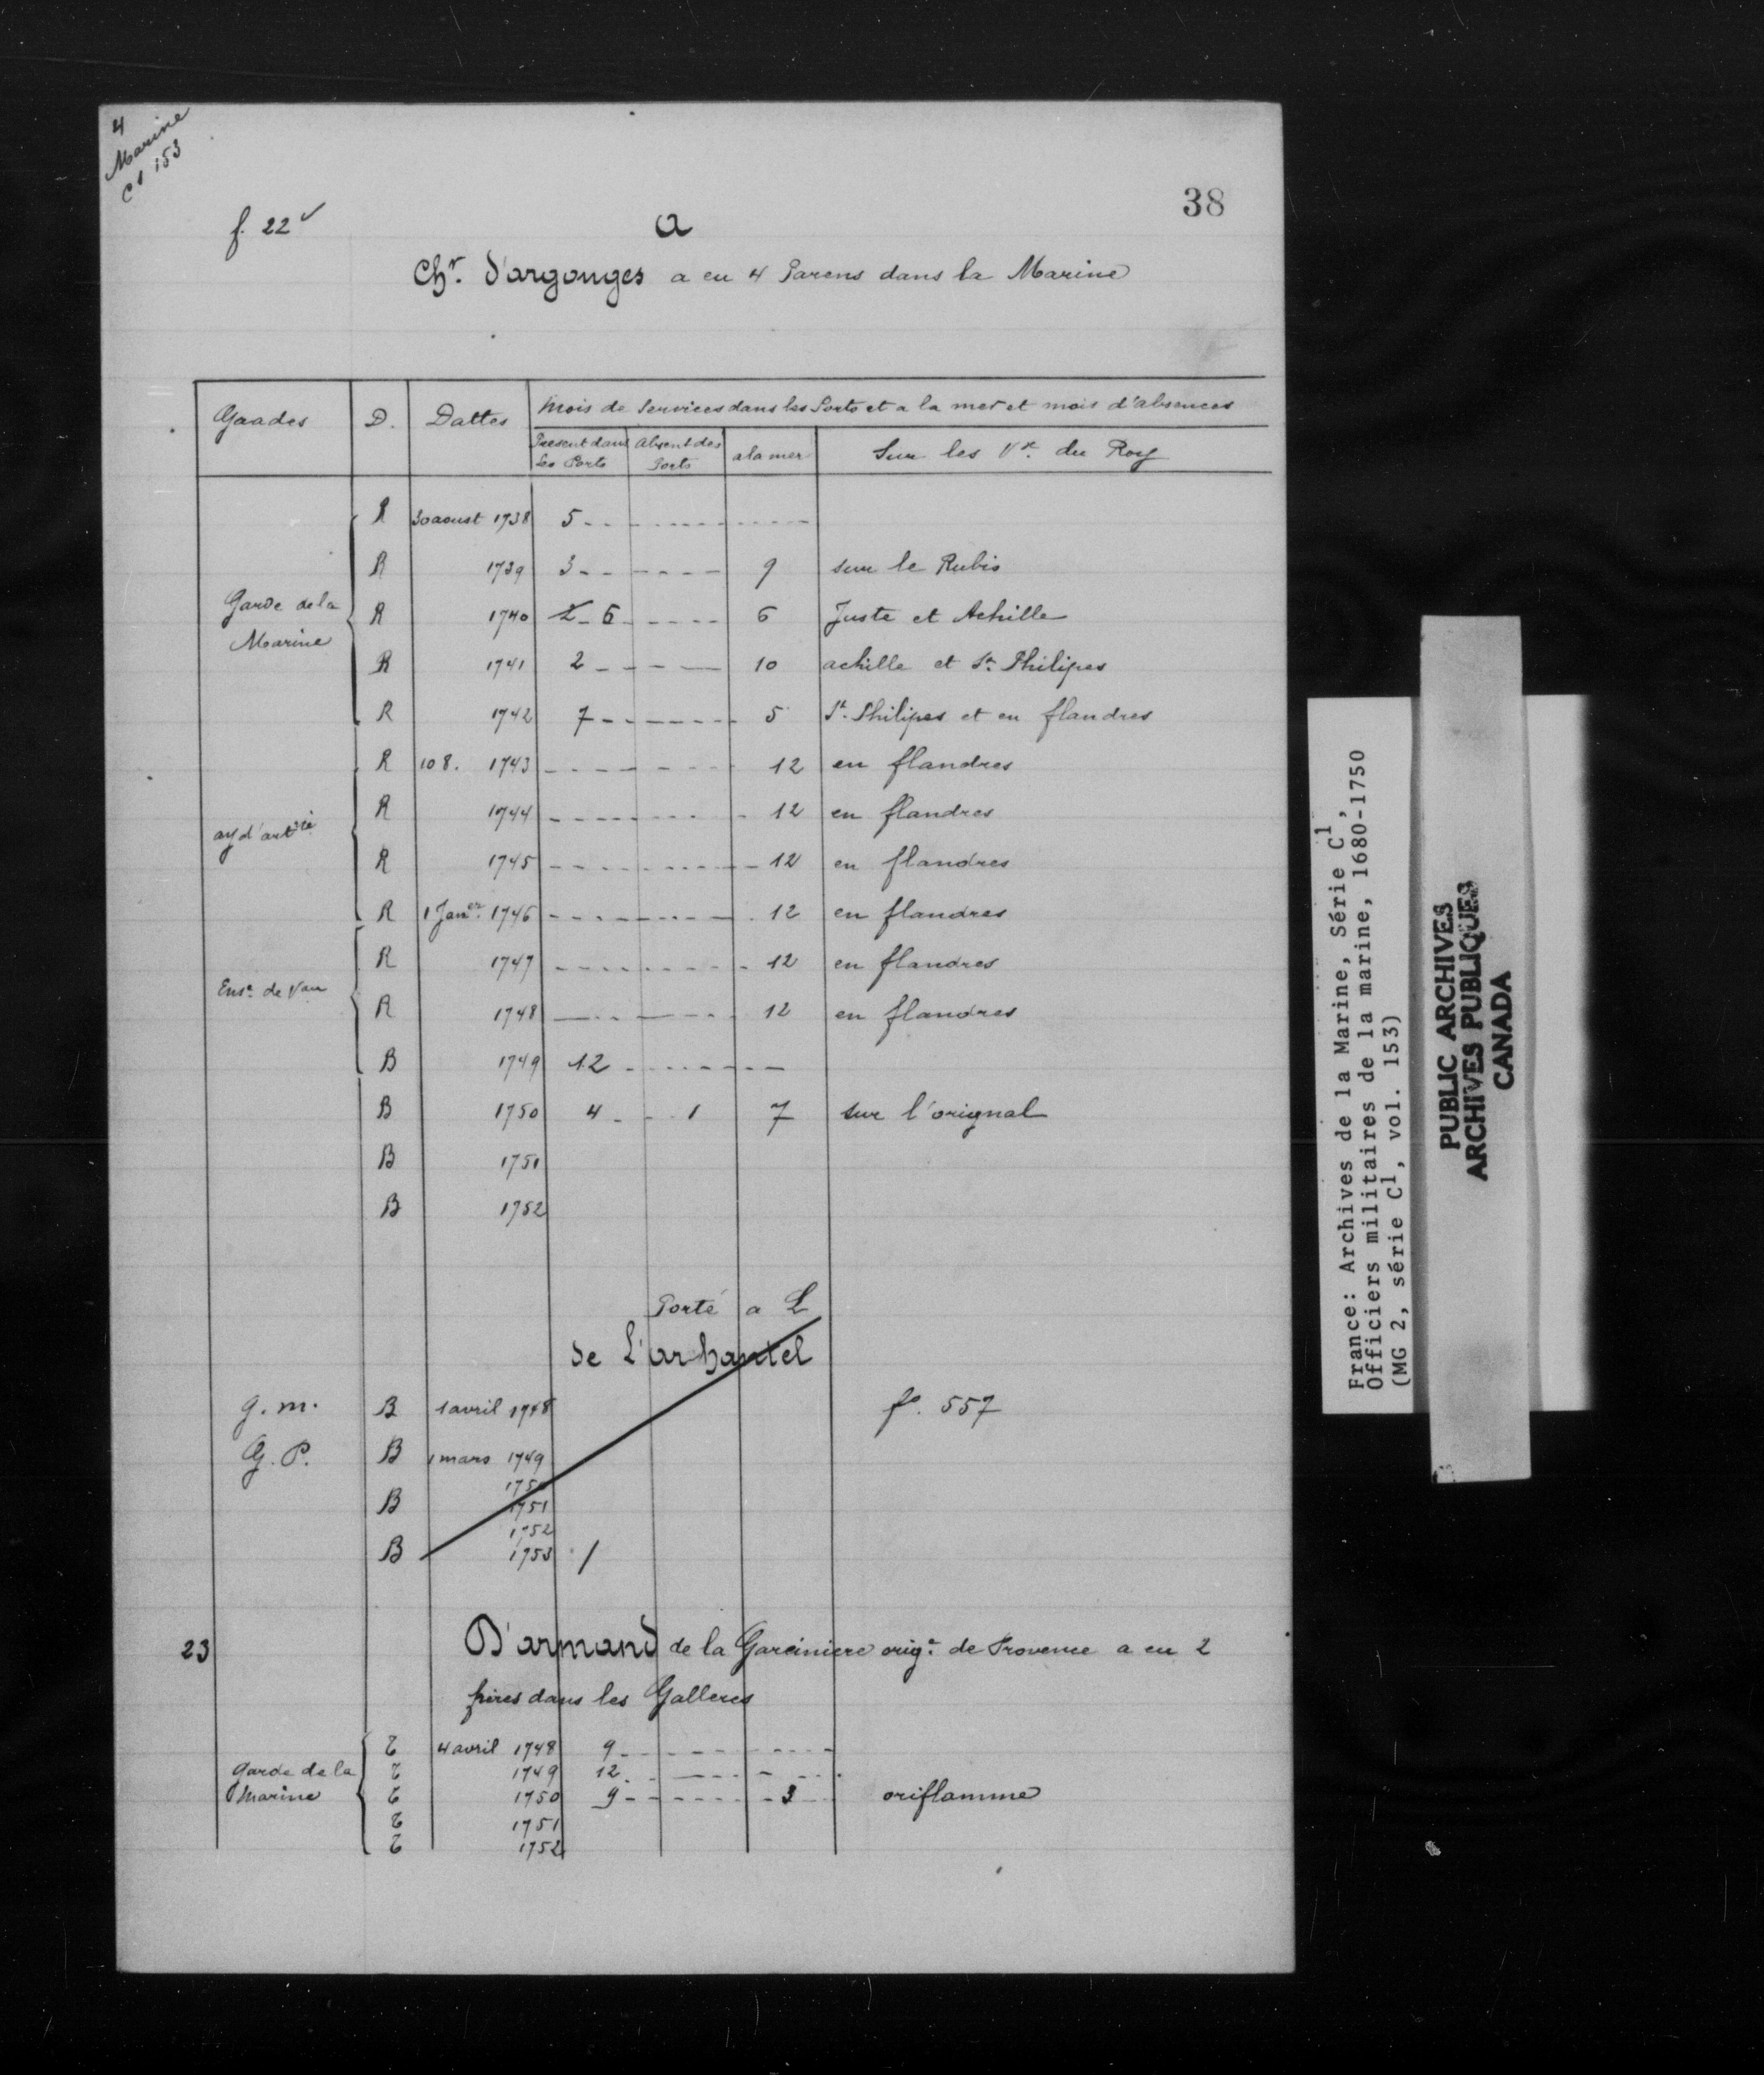 4
Marine
C1 153
38
f. 22v
a
Chr. d'argouges a eu 4 Parens dans la Marine
Grades D. Dattes Mois de Services dans les Ports et a la mer et mois d'absences
Present dans les Ports Absent des Ports a la mer Sur les Vx. du Roy
R 30 aoust 1738 5
R 1739 3 9 sur le Rubis
Garde de la Marine R 1740 6 6 Juste et Achille
R 1741 2 10 achille et St. Philipes
R 1742 7 5 St. Philipes et en flandres
R 10 8. 1743 12 en flandres
ay d'artrie R 1744 12 en flandres
R 1745 12 en flandres
R 1 Janer. 1746 12 en flandres
R 1747 12 en flandres
Ense. de Vau R 1748 12 en flandres
B 1749 12
B 1750 4 1 7 sur l'orignal
B 1751
B 1752
Porté a L
de L'archantel
g. m. B 1 avril 1748 fo. 557
G. P. B 1 mars 1749
1750
B 1751
1752
B 1753 /
23 D'armand de la Garciniere orige. de Provence a eu 2
frires dans les Galleres
T 4 avril 1748 9
Garde de la T 1749 12
Marine T 1750 9 3 oriflamme
T 1751
T 1752
France: Archives de la Marine, Série C1,
Officiers militaires de la marine, 1680-1750
(MG 2, série C1, vol. 153)
PUBLIC ARCHIVES
ARCHIVES PUBLIQUES
CANADA